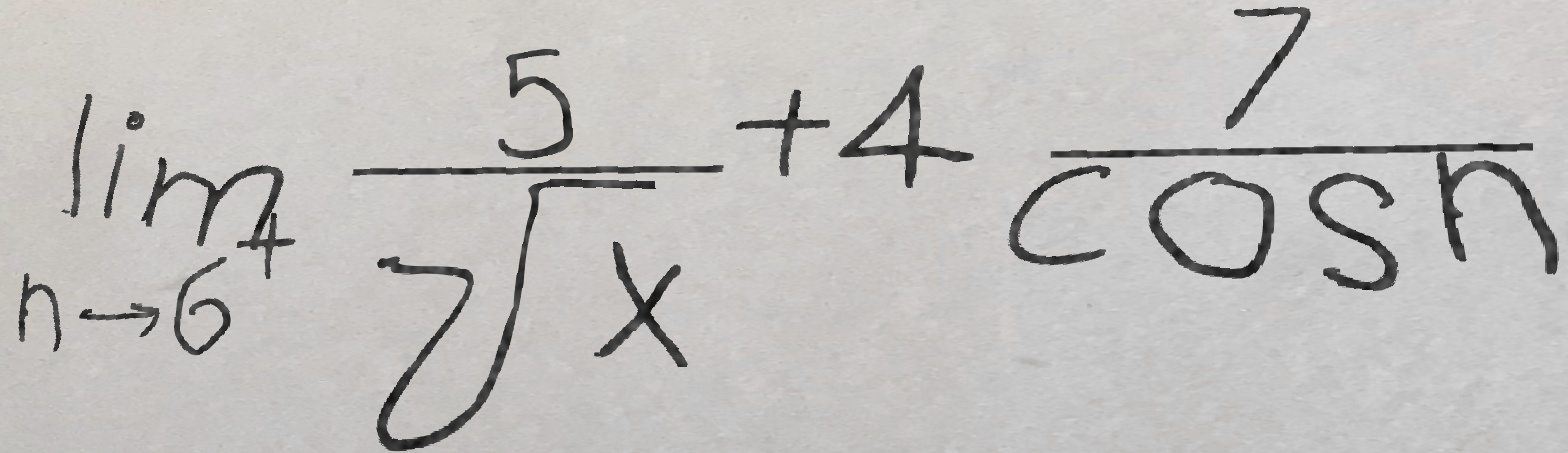 \lim_{n \to 6^+} \frac{5}{\sqrt{x}} + 4 \frac{7}{\cos n}